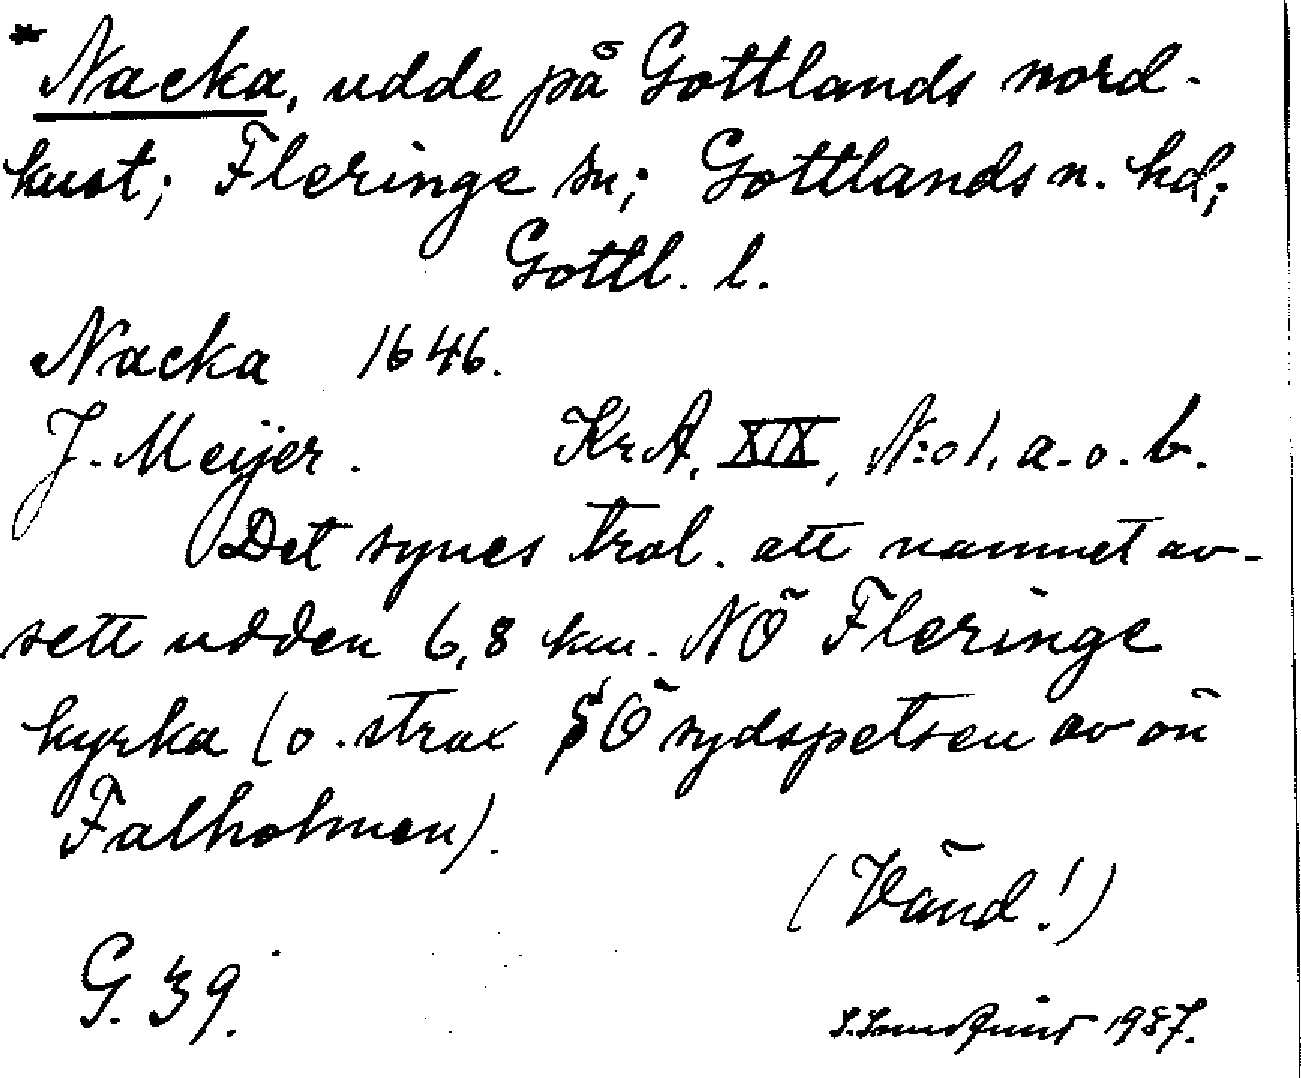 * Nacka, udde på Gottlands nord-
kust; Fleringe sn; Gottlands n. hd;
Gottl. l.
Nacka 1646.
J. Meijer. KrA, XIX, N:o 1. a. o. b.
Det synes trol. att namnet av-
sett udden 6,8 km. NÖ Fleringe
kyrka (o. strax SÖ sydspetsen av ön
Falholmen).
(Vänd!)
G. 39.
1937.